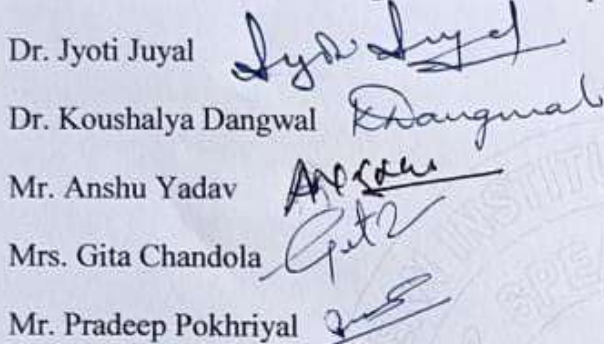 Dr. Jyoti Juyal Jyoti Juyal
Dr. Koushalya Dangwal KDangwal
Mr. Anshu Yadav
Mrs. Gita Chandola Gita
Mr. Pradeep Pokhriyal
INSTITU
SPE